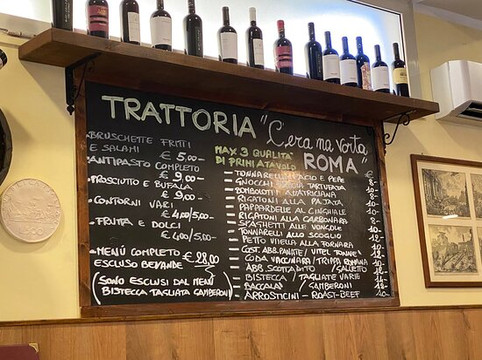 TRATTORIA "C'era na vorta
ROMA"
MAX 3 QUALITA'
DI PRIMI A TAVOLO
- BRUSCHETTE FRITTI
E SALAMI € 5,00-
- ANTIPASTO COMPLETO
€ 9,00-
- PROSCIUTTO E BUFALA
€ 9,00-
- CONTORNI VARI
€ 4,00/5,00-
- FRUTTA E DOLCI
€ 4,00/5,00-
- MENÚ COMPLETO € 28,00
ESCLUSO BEVANDE
(SONO ESCLUSI DAL MENÚ
BISTECCA TAGLIATA GAMBERONI)
€
- TONNARELLI CACIO E PEPE 8-
- GNOCCHI TARTUFATA
- BOMBOLOTTI AMATRICIANA
- RIGATONI ALLA PAJATA
- PAPPARDELLE AL CINGHIALE
- RIGATONI ALLA CARBONARA
- SPAGHETTI ALLE VONGOLE
- TONNARELLI ALLO SCOGLIO
- PETTO VITELLA ALLA FORNARA
- COST. ABB. PANATE/ VITEL TONNÉ
- CODA VACCINARA/TRIPPA ROMANA
- ABB. SCOTTADITO /GALLETTO
- BISTECCA / TAGLIATE VARIE
- BACCALÀ / GAMBERONI
- ARROSTICINI - ROAST-BEEF